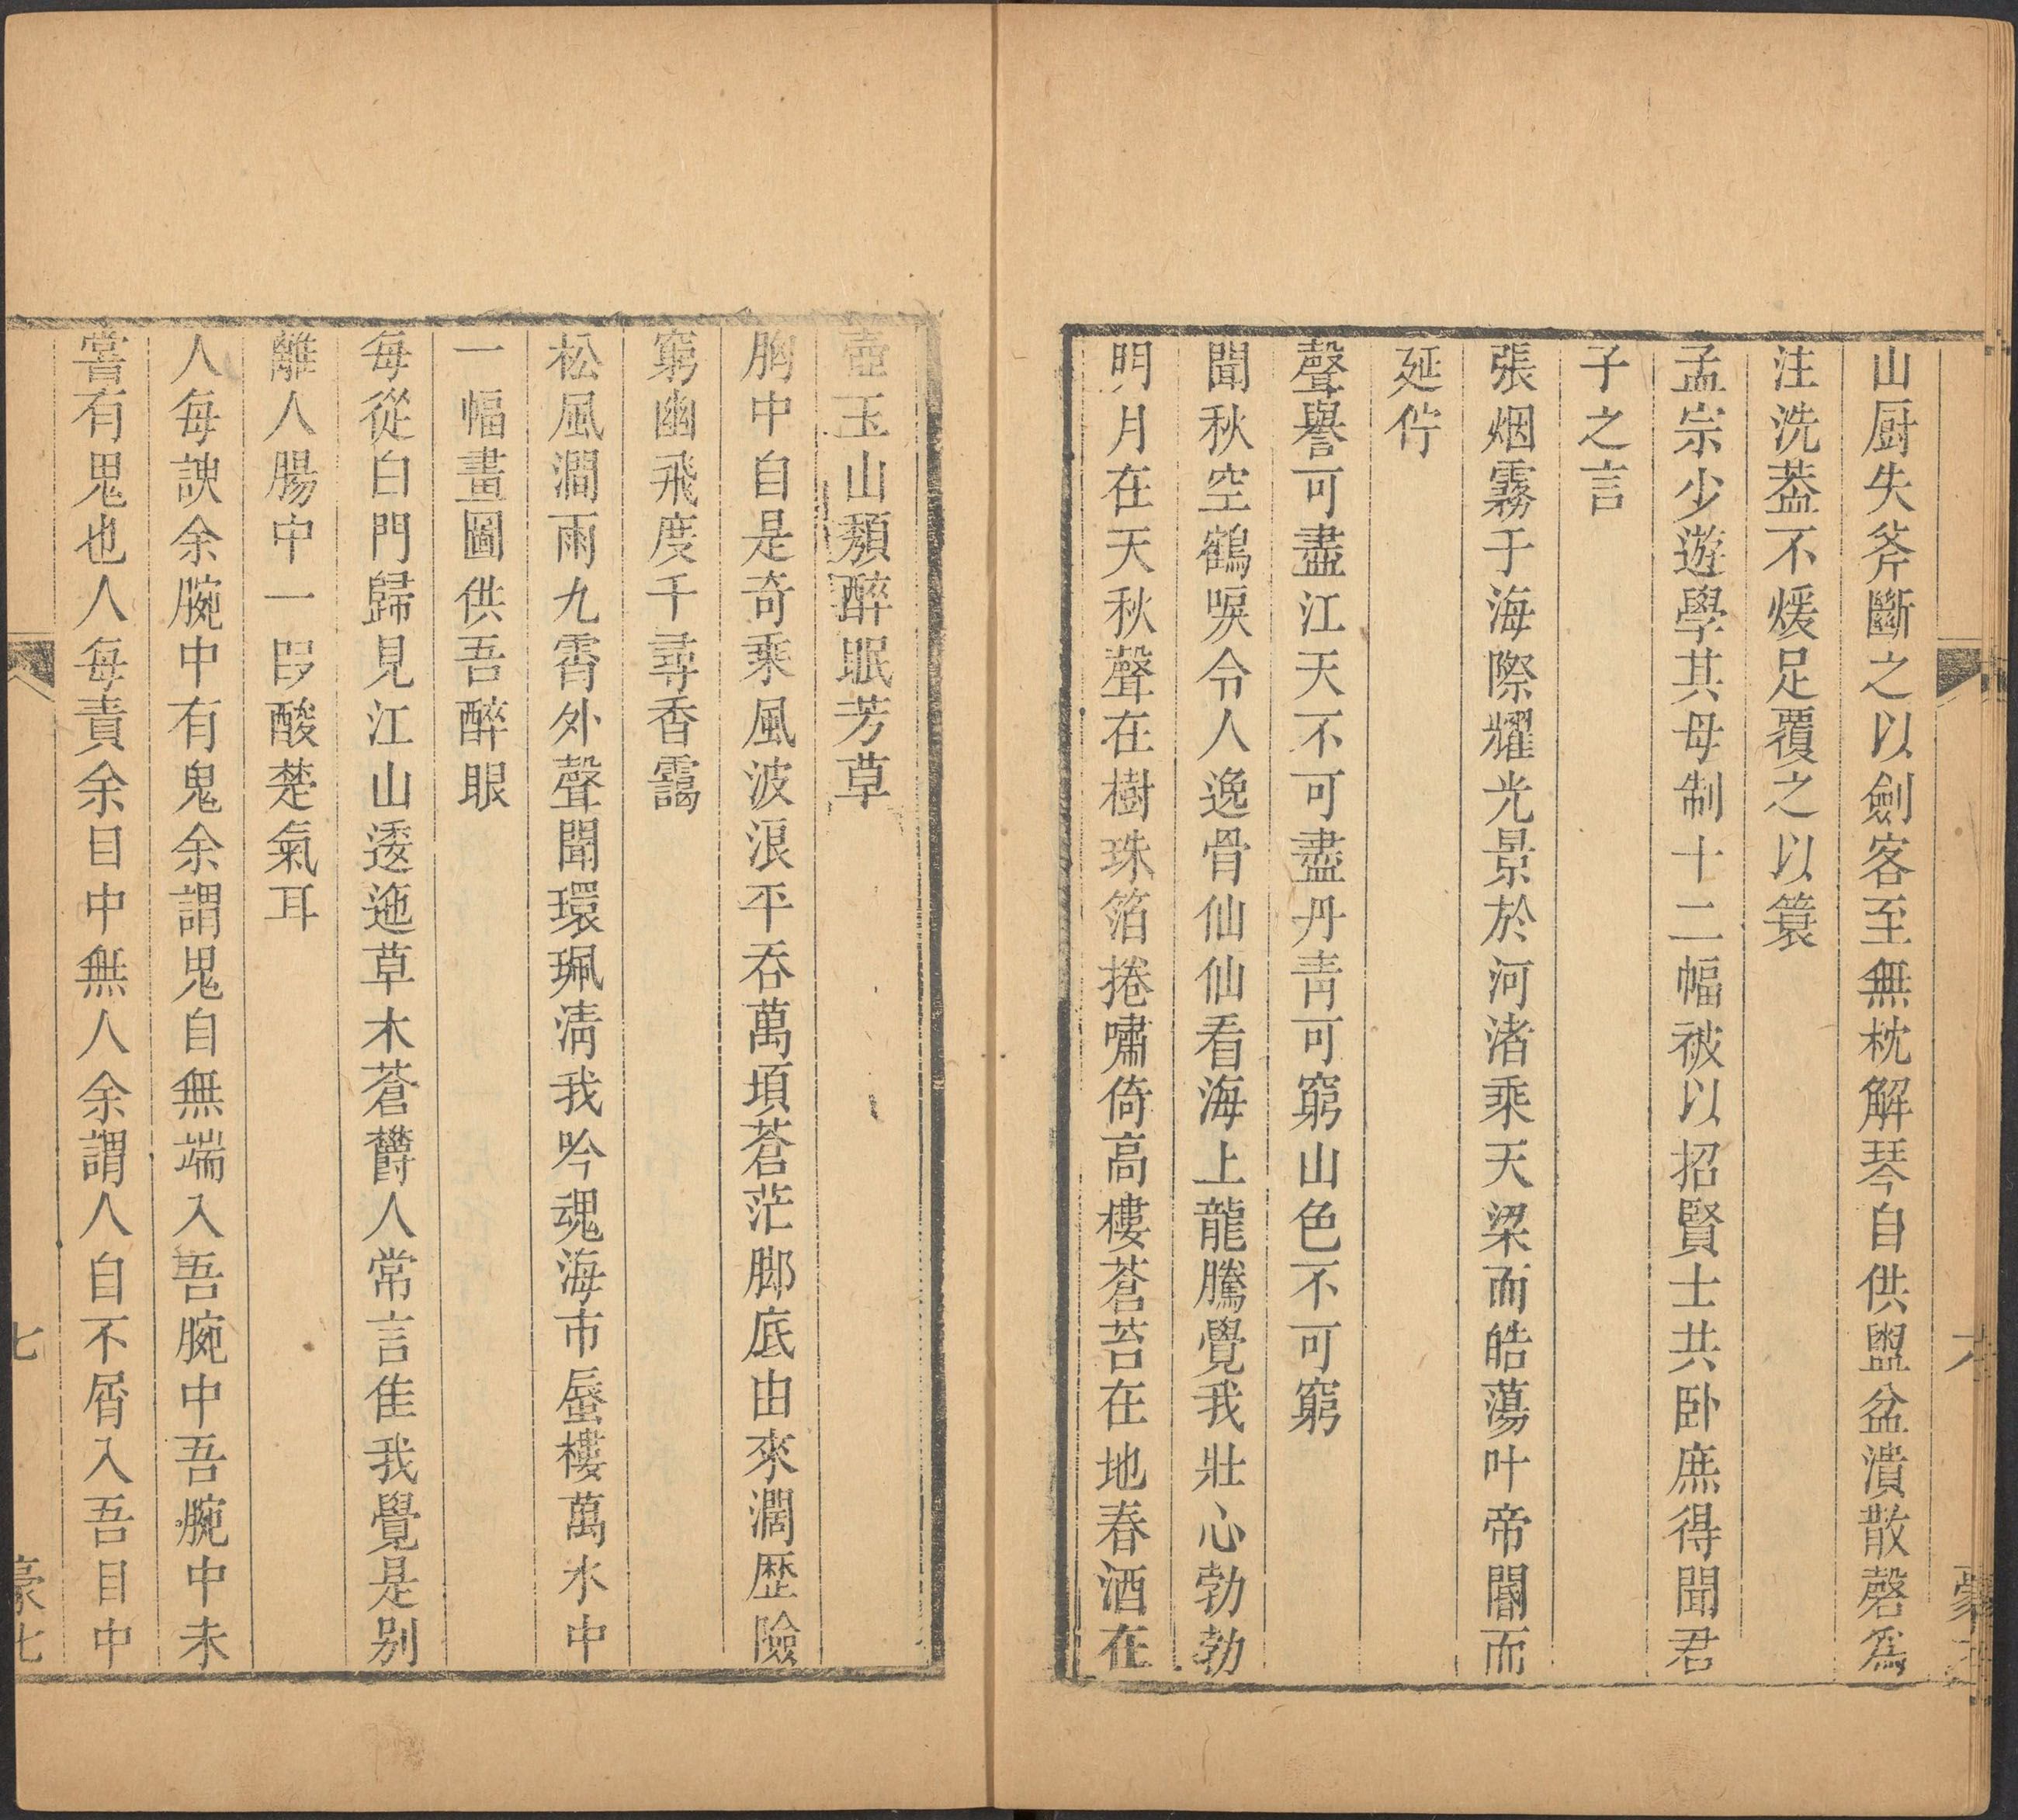 山厨失斧斷之以劍客至無枕解琴自供盥盆潰散磬爲
注洗葢不煖足覆之以簑
孟宗少遊學其母制十二幅被以招賢士共卧庶得聞君
子之言
張烟霧于海際耀光景於河渚乘天梁而皓蕩叶帝閽而
延佇
聲譽可盡江天不可盡丹青可窮山色不可窮
聞秋空鶴唳令人逸骨仙仙看海上龍騰覺我壯心勃勃
明月在天秋聲在樹珠箔捲嘯倚高樓蒼苔在地春酒在
壺玉山頽醉眠芳草
胸中自是奇乘風波浪平吞萬頃蒼茫脚底由來濶歷險
窮幽飛度千尋香靄
松風澗雨九霄外聲聞環珮清我吟魂海市蜃樓萬水中
一幅畫圖供吾醉眼
每從白門歸見江山逶迤草木蒼欝人常言佳我覺是别
離人腸中一叚酸楚氣耳
人每諛余腕中有鬼余謂鬼自無端入吾腕中吾腕中未
嘗有鬼也人每責余目中無人余謂人自不屑入吾目中
七
豪七